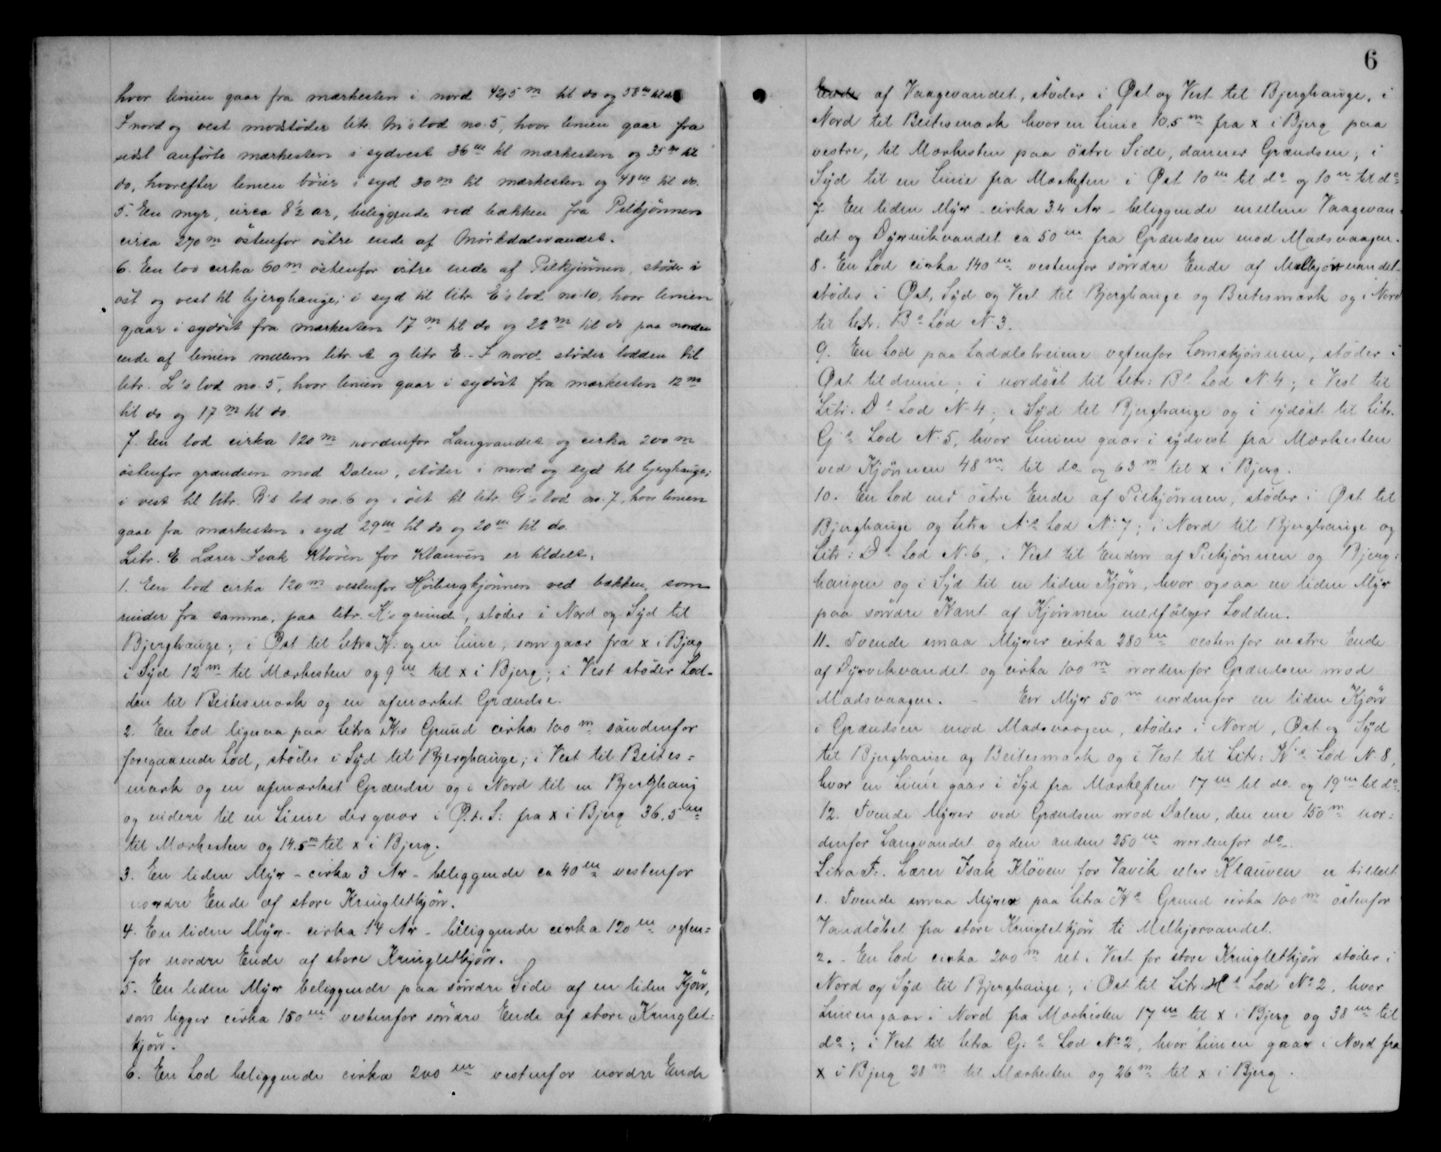 hvor linien gaar fra mærkesten i nord 42,5 m til do og 58 m til do
I nord og vest modstöder litr. M's lod no. 5, hvor linien gaar fra
sidst anförte mærkesten i sydvest 36 m til mærkesten og 35 m til
do, hvorefter linien böier i syd 20 m til mærkesten og 48 m til do.
5. Een myr, circa 8½ ar, beliggende ved bækken fra Pilkjönnen
circa 270 m östenfor östre ende af Mörkdalsvandet.
6. Een lod cirka 60 m östenfor östre ende af Pilkjönnen, stöder i
öst og vest til bjerghange; i syd til litr. E's lod no. 10, hvor linien
gjaar i sydöst fra mærkesten 17 m til do og 22 m til do paa nordre
ende af linien mellem litr. A og litr. E. - I nord stöder lodden til
litr. L's lod no. 5, hvor linien gaar i sydöst fra mærkesten 12 m
til do og 17 m til do.
7. Een lod cirka 120 m nordenfor Langvandet og cirka 200 m
östenfor grændsen mod Dalen, stöder i nord og syd til bjerghange;
i vest til litr. B's lod no. 6 og i öst til litr. G's lod no. 7, hvor linien
gaar fra mærkesten i syd 29 m til do og 20 m til do.
Litr. E Lærer Isak Kloven for Klauven er tildelt.
1. Een lod cirka 120 m vestenfor Höibergkjönnen ved bækken, som
rinder fra samme, paa litr. K's grund, stöder i Nord og Syd til
Bjerghange; i Öst til Litra K. og en Linie, som gaar fra x i Bjerg
i Syd 12 m til Mærkesten og 9 m til x i Bjerg; i Vest stöder Lod-
den til Beitesmark og en afmærket Grændse.
2. En Lod ligesaa paa Litra Ks Grund cirka 100 m söndenfor
foregaaende Lod, stöder i Syd til Bjerghange; i Vest til Beites=
mark og en afmærket Grændse og i Nord til en Bjerghang
og videre til en Linie der gaar i Ö.t.S. fra x i Bjerg 36,5 m
til Mærkesten og 14,5 m til x i Bjerg.
3. En liden Myr - cirka 3 Ar - beliggende ca 40 m vestenfor
nordre Ende af store Kringletkjön.
4. En liden Myr - cirka 14 Ar - beliggende cirka 120 m östen=
for nordre Ende af store Kringletkjön.
5. En liden Myr beliggende paa söndre Side af en liden Kjön,
som ligger cirka 150 m vestenfor söndre Ende af store Kringlet=
kjön.
6. En Lod beliggende cirka 200 m vestenfor nordre Ende
6
af Vaagevandet, stöder i Öst og Vest til Bjerghange, i
Nord til Beitesmark hvor en Linie 10,5 m fra x i Bjerg paa
vestre, til Mærkesten paa östre Side, danner Grændsen; i
Syd til en Linie fra Mærkesten i Öst 10 m til do og 10 m til do
7. En liden Myr - cirka 34 Ar - beliggende mellem Vaagevan=
det og Dyrvikvandet ca 50 m fra Grændsen mod Madsvaagen.
8. En Lod cirka 140 m vestenfor söndre Ende af Melkjørvandet
stöder i Öst, Syd og Vest til Bjerghange og Beitesmark og i Nord
til litr: B's Lod N. 3.
9. En Lod paa Laddalsheiene östenfor Lomekjönnen, stöder i
Öst til denne; i nordöst til Litr: B's Lod N. 4; i Vest til
Litr. D's Lod N. 4, i Syd til Bjerghange og i sydöst til Litr.
G's Lod N. 5, hvor Linien gaar i sydvest fra Mærkesten
ved Kjönnen 48 m til do og 63 m til x i Bjerg.
10. En Lod ved östre Ende af Pilkjönnen, stöder i Öst til
Bjerghange og Litra A's Lod No. 7; i Nord til Bjerghange og
Litr: D's Lod N. 6, i Vest til Enden af Pilkjönnen og Bjerg=
hangen og i Syd til en liden Kjön, hvor ogsaa en liden Myr
paa söndre Kant af Kjönnen medfölger Lodden.
11. Tvende smaa Myrer cirka 280 m vestenfor vestre Ende
af Dyrvikvandet og cirka 100 m nordenfor Grændsen mod
Madsvaagen. - En Myr 50 m nordenfor en liden Kjön
i Grændsen mod Madsvaagen, stöder i Nord, Öst og Syd
til Bjerghange og Beitesmark og i Vest til Litr: K's Lod N. 8,
hvor en Linie gaar i Syd fra Mærkesten 17 m til do. og 19 m til do.
12. Tvende Myrer ved Grændsen mod Dalen, den ene 150 m nor=
denfor Langvandet og den anden 250 m nordenfor do.
Litra F. Lærer Isak Klöven for Vavik eller Klauven er tildelt
1. Tvende smaa Myrer paa litra K's Grund cirka 100 m östenfor
Vandlöbet fra store Kringletkjön til Melkjorvandet.
2. - En Lod cirka 200 m ret i Vest for store Kringletkjön stöder i
Nord og Syd til Bjerghange; i Öst til Litr. H's Lod No 2, hvor
Linien gaar i Nord fra Mærkesten 17 m til x i Bjerg og 38 m til
do; i Vest til litra G.'s Lod No 2, hvor Linien gaar i Nord fra
x i Bjerg 28 m til Mærkesten og 26 m til x i Bjerg.